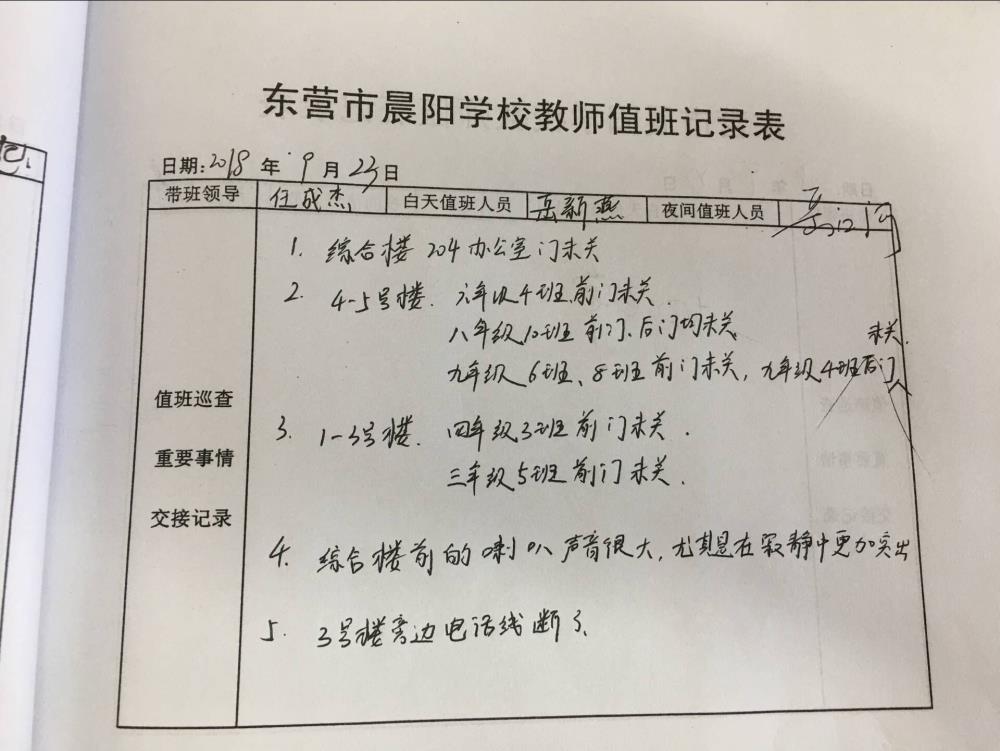 东营市晨阳学校教师值班记录表
日期:2018 年 9 月 23 日
带班领导 任成杰 白天值班人员 岳新燕 夜间值班人员
1. 综合楼 204 办公室门未关
2. 4-5号楼. 六年级4班前门未关.
八年级10班前门、后门均未关
未关.
九年级6班、8班前门未关, 九年级4班后门
值班巡查
3. 1-3号楼. 四年级3班前门未关.
重要事情
三年级5班前门未关.
交接记录
4. 综合楼前的喇叭声音很大, 尤其是在寂静中更加突出
5. 3号楼旁边电话线断了.